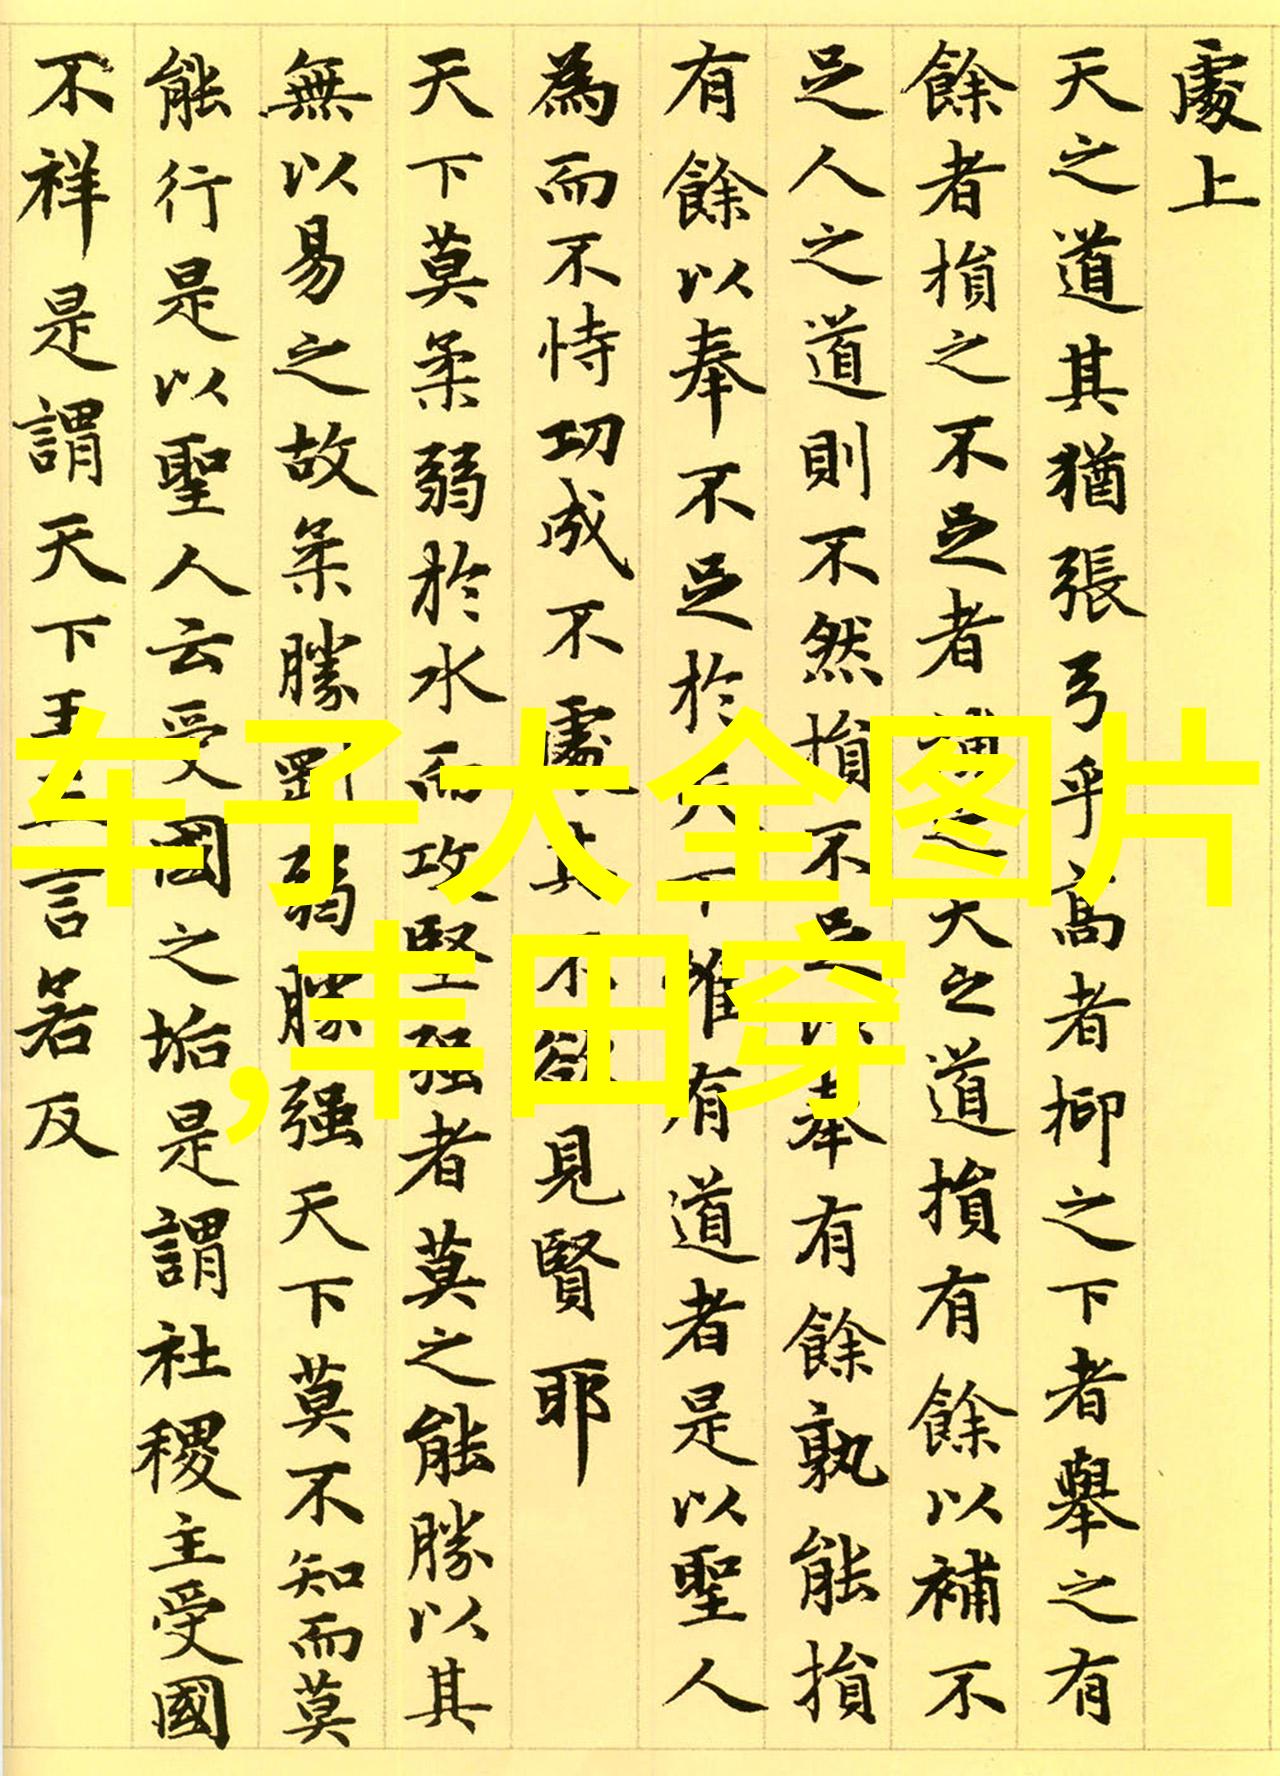 處上
天之道其猶張弓乎高者抑之下者舉之有
餘者損之不足者補之天之道損有餘以補不
足人之道則不然損不足以奉有餘孰能損
有餘以奉不足於天下惟有道者是以聖人
為而不恃功成不處其不欲見賢耶
天下莫柔弱於水而攻堅强者莫之能勝以其
無以易之故柔勝剛弱勝强天下莫不知而莫
能行是以聖人云受國之垢是謂社稷主受國
不祥是謂天下王正言若反
车子大全图片
,丰田穿